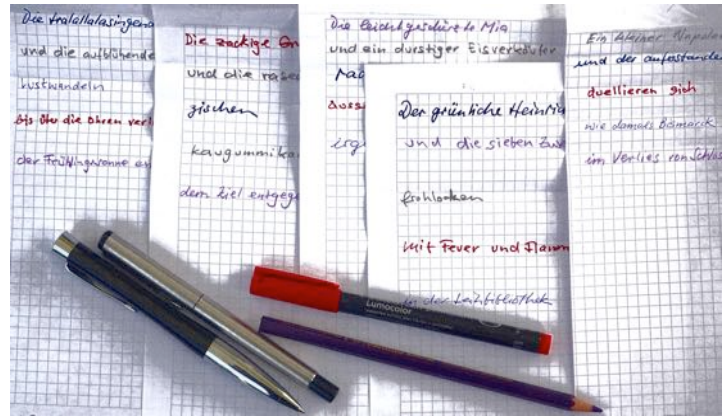 Die tralallalasingend
und die aufblühende
lustwandeln
bis über die Ohren verl
der Frühlingswonne en
Die zackige
und die rase
zischen
kaugummika
dem Ziel entgeg
Die leichtgeschürzte Mia
und ein durstiger Eisverkäufer
Der grünliche Heinri
und die sieben Zw
frohlocken
mit Feuer und Flamm
in der Leihbibliothek
Ein kleiner Napole
und der aufständ
duellieren sich
wie damals Bismarck
im Verlies von Schlos
Lumocolor